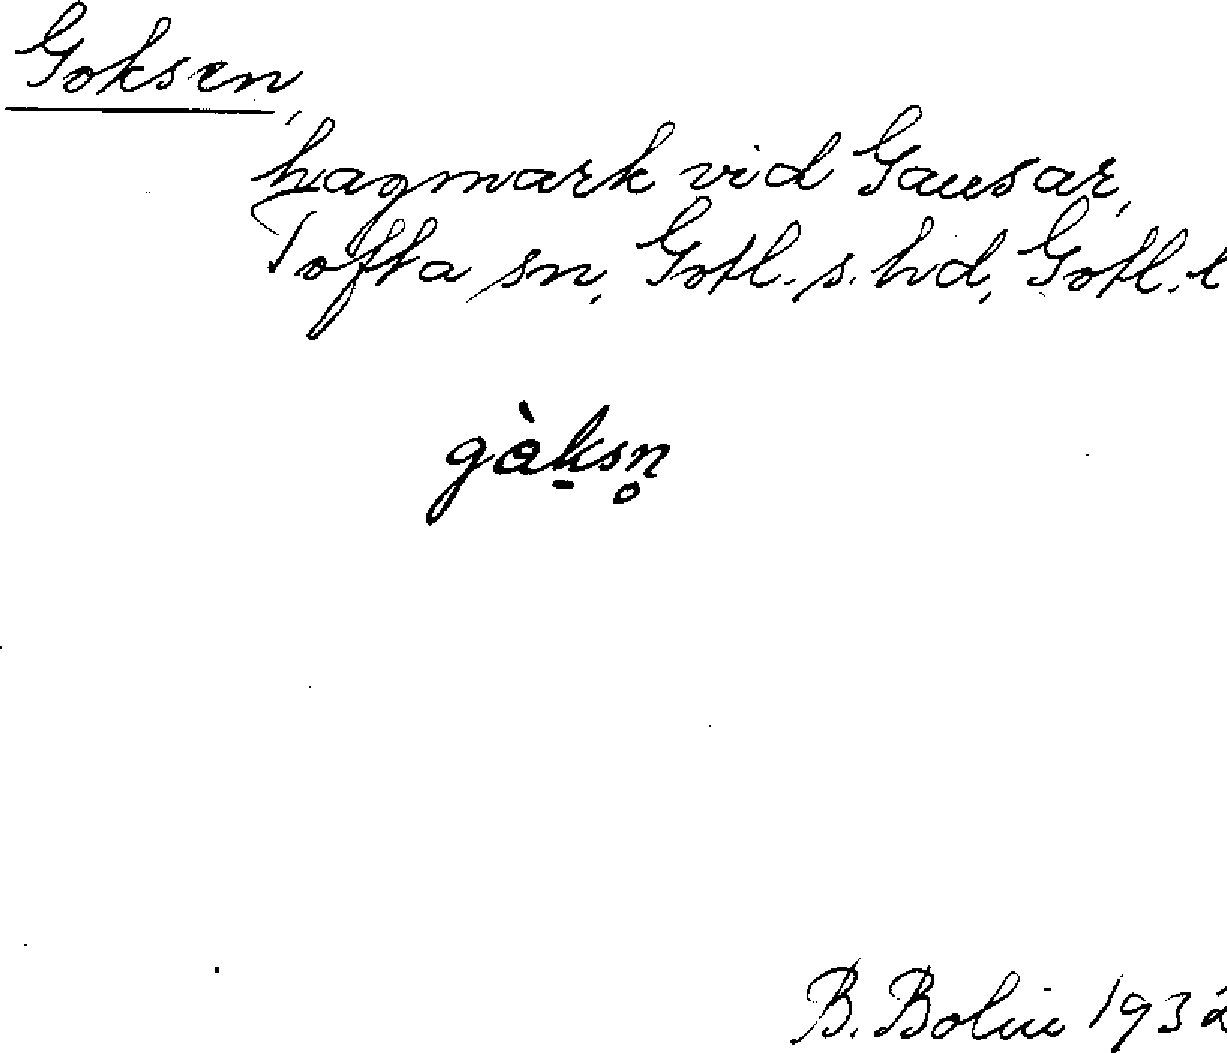 Goksen,
hagmark vid Gausar,
Tofta sn, Gotl. s. hd, Gotl. l
gàk̠sn̥
B. Bolin 1932